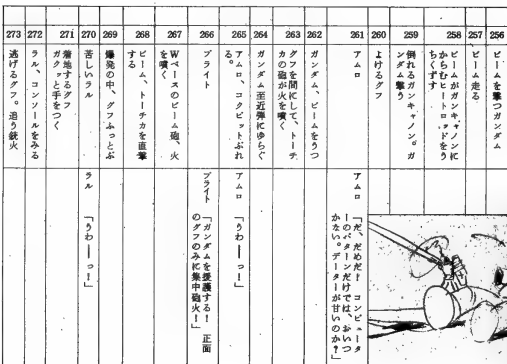 256
ビームを撃つガンダム
257
ビーム走る
258
ビームがガンキャノンに
からむヒートロッドをう
ちくずす
259
倒れるガンキャノン。ガ
ンダム撃う
260
よけるグフ
261
アムロ
アムロ
「だ、だめだ! コンピュータ
ーのパターンだけでは、おいつ
かない。データーが甘いのか?」
262
ガンダム、ビームをうつ
263
グフを間にして、トーチ
カの砲が火を噴く
264
ガンダム至近弾にゆらぐ
265
アムロ、コクピットぶれ
る。
アムロ
「うわーっ!」
266
ブライト
ブライト
「ガンダムを援護する! 正面
のグフのみに集中砲火!」
267
Wベースのビーム砲、火
を噴く
268
ビーム、トーチカを直撃
する
269
爆発の中、グフふっとぶ
270
苦しいラル
ラル
「うわ——っ!」
271
着地するグフ
ガクッと手をつく
272
ラル、コンソールをみる
273
逃げるグフ。追う銃火